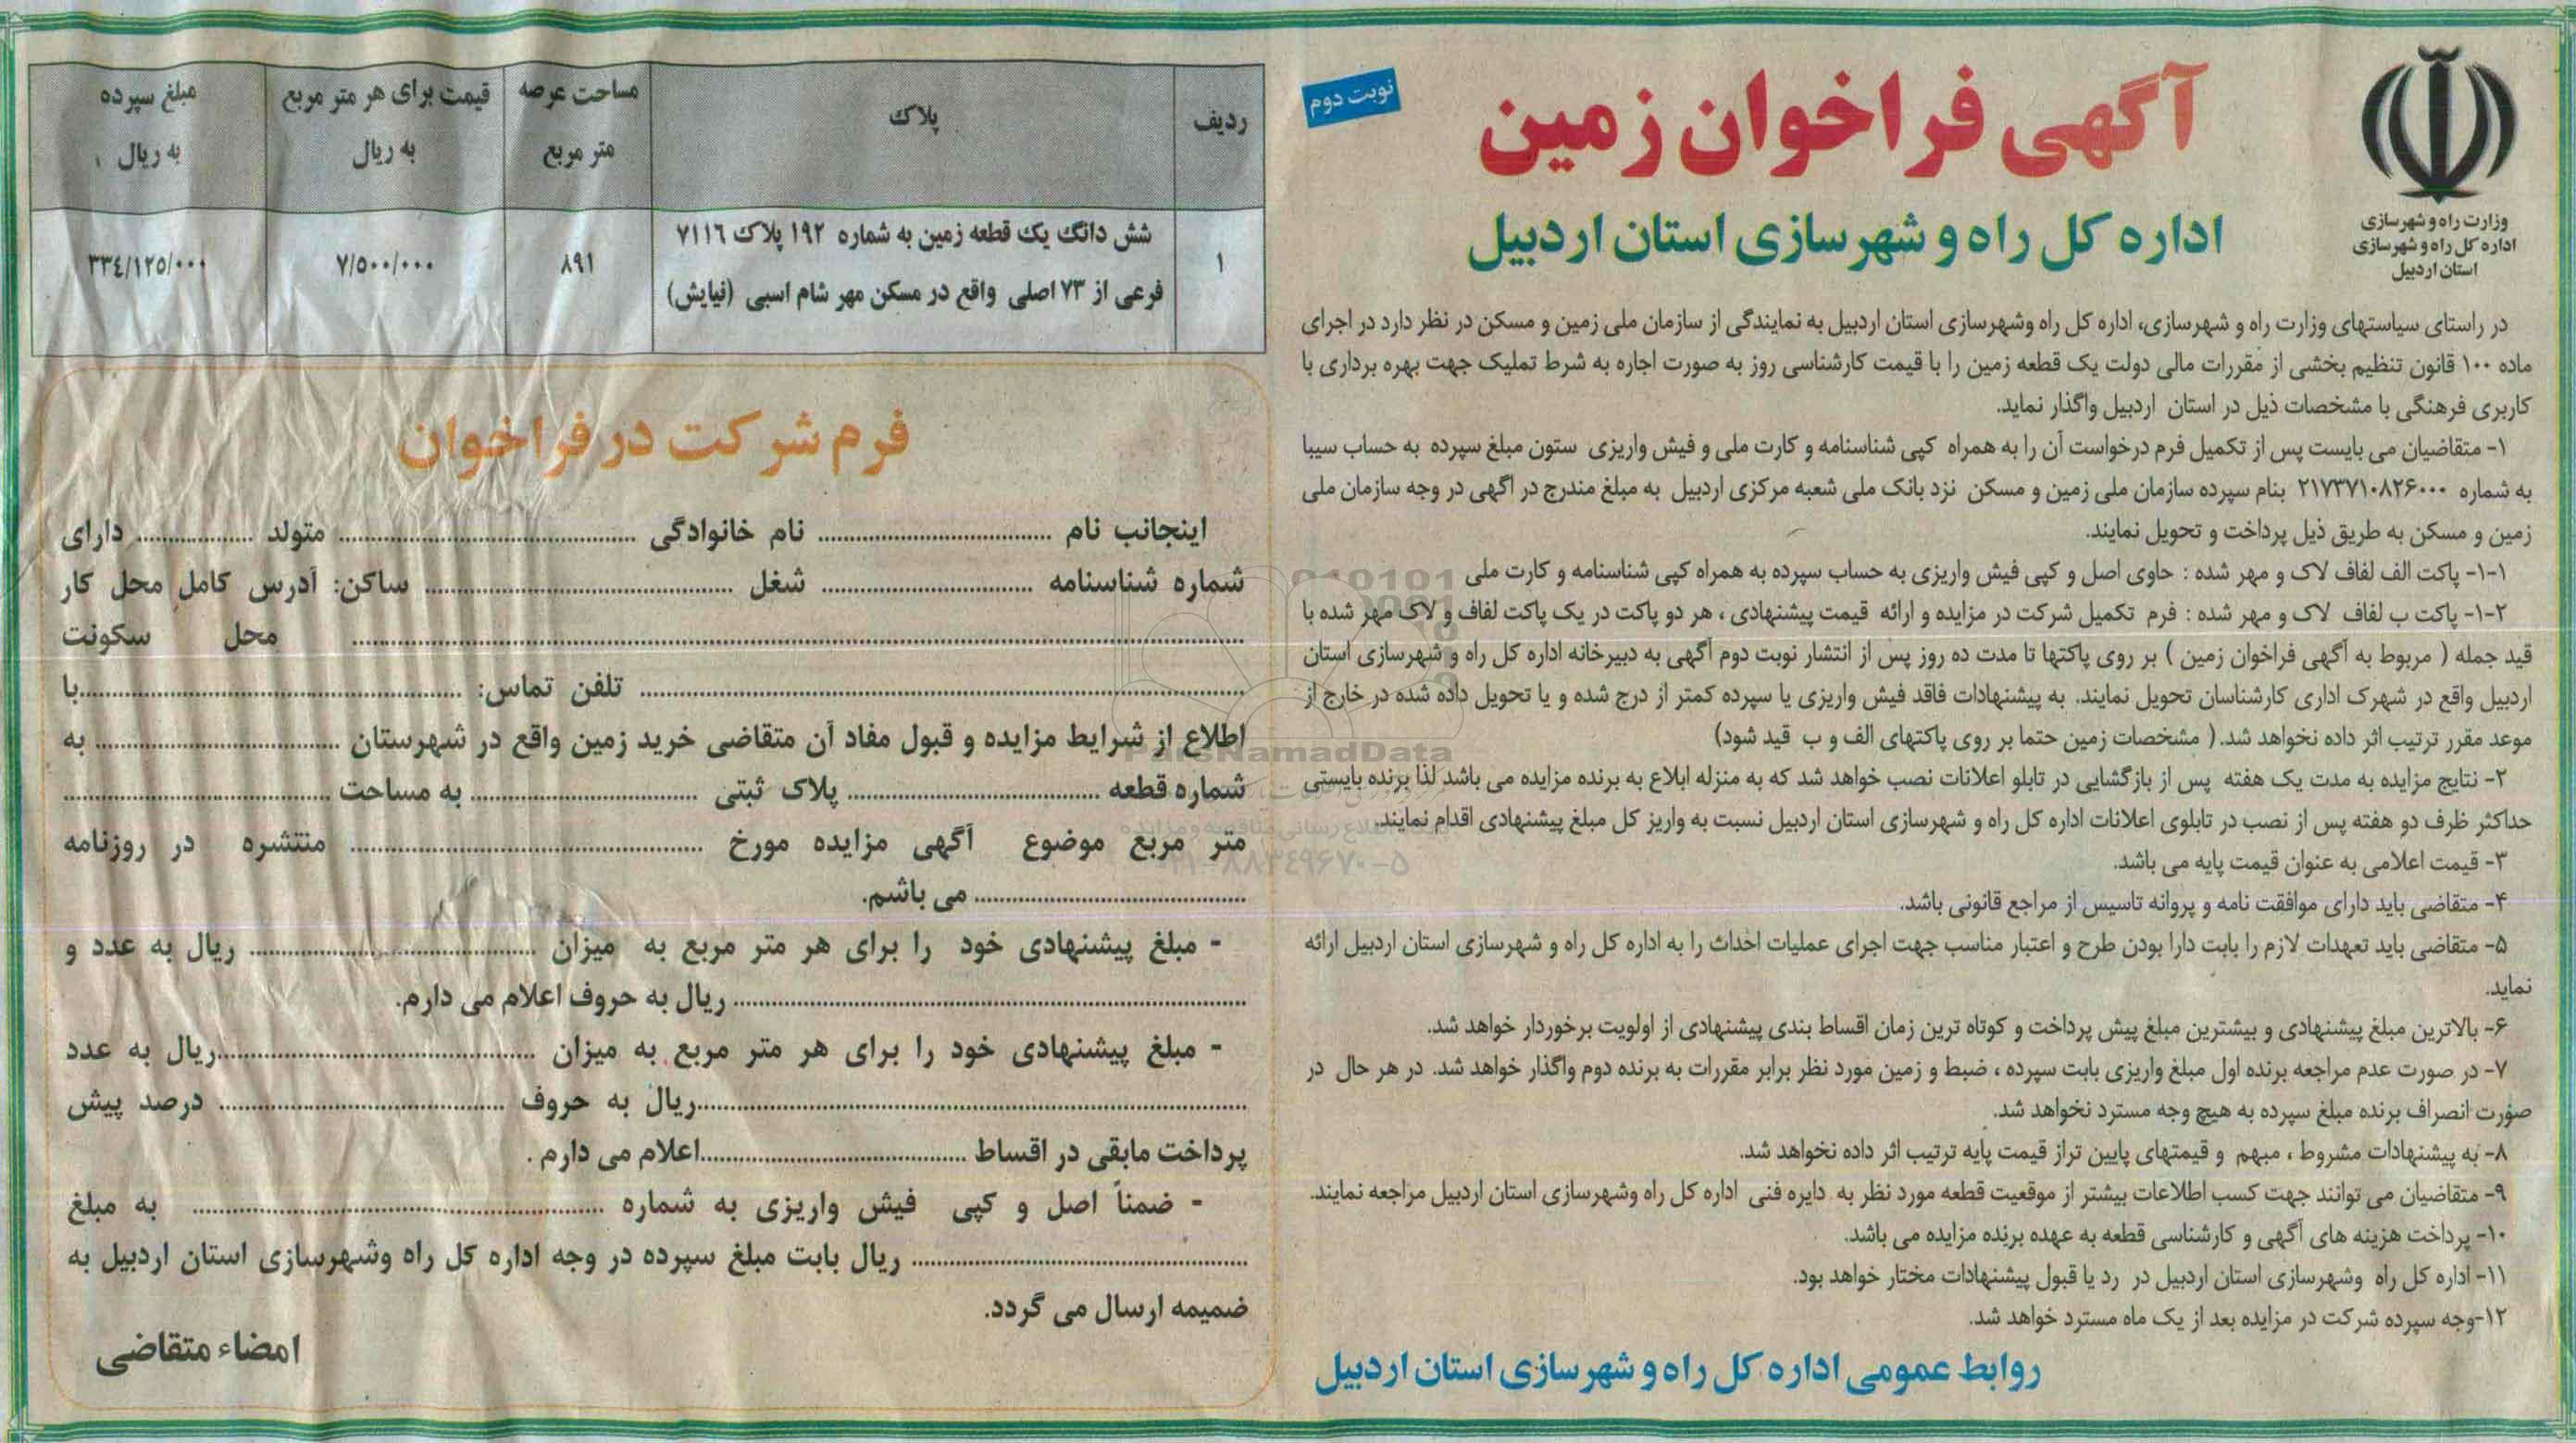 وزارت راه و شهرسازی
اداره کل راه و شهرسازی
استان اردبیل
آگهی فراخوان زمین
نوبت دوم
اداره کل راه و شهرسازی استان اردبیل
در راستای سیاستهای وزارت راه و شهرسازی، اداره کل راه وشهرسازی استان اردبیل به نمایندگی از سازمان ملی زمین و مسکن در نظر دارد در اجرای
ماده ۱۰۰ قانون تنظیم بخشی از مقررات مالی دولت یک قطعه زمین را با قیمت کارشناسی روز به صورت اجاره به شرط تملیک جهت بهره برداری با
کاربری فرهنگی با مشخصات ذیل در استان اردبیل واگذار نماید.
۱- متقاضیان می بایست پس از تکمیل فرم درخواست آن را به همراه کپی شناسنامه و کارت ملی و فیش واریزی ستون مبلغ سپرده به حساب سیبا
به شماره ۲۱۷۳۷۱۰۸۲۶۰۰۰ بنام سپرده سازمان ملی زمین و مسکن نزد بانک ملی شعبه مرکزی اردبیل به مبلغ مندرج در آگهی در وجه سازمان ملی
زمین و مسکن به طریق ذیل پرداخت و تحویل نمایند.
۱-۱- پاکت الف لفاف لاک و مهر شده : حاوی اصل و کپی فیش واریزی به حساب سپرده به همراه کپی شناسنامه و کارت ملی
۱-۲- پاکت ب لفاف لاک و مهر شده : فرم تکمیل شرکت در مزایده و ارائه قیمت پیشنهادی ، هر دو پاکت در یک پاکت لفاف و لاک مهر شده با
قید جمله ( مربوط به آگهی فراخوان زمین ) بر روی پاکتها تا مدت ده روز پس از انتشار نوبت دوم آگهی به دبیرخانه اداره کل راه و شهرسازی استان
اردبیل واقع در شهرک اداری کارشناسان تحویل نمایند. به پیشنهادات فاقد فیش واریزی یا سپرده کمتر از درج شده و یا تحویل داده شده در خارج از
موعد مقرر ترتیب اثر داده نخواهد شد. ( مشخصات زمین حتما بر روی پاکتهای الف و ب قید شود)
۲- نتایج مزایده به مدت یک هفته پس از بازگشایی در تابلو اعلانات نصب خواهد شد که به منزله ابلاع به برنده مزایده می باشد لذا برنده بایستی
حداکثر ظرف دو هفته پس از نصب در تابلوی اعلانات اداره کل راه و شهرسازی استان اردبیل نسبت به واریز کل مبلغ پیشنهادی اقدام نمایند.
۳- قیمت اعلامی به عنوان قیمت پایه می باشد.
۴- متقاضی باید دارای موافقت نامه و پروانه تاسیس از مراجع قانونی باشد.
۵- متقاضی باید تعهدات لازم را بابت دارا بودن طرح و اعتبار مناسب جهت اجرای عملیات احداث را به اداره کل راه و شهرسازی استان اردبیل ارائه
نماید.
۶- بالاترین مبلغ پیشنهادی و بیشترین مبلغ پیش پرداخت و کوتاه ترین زمان اقساط بندی پیشنهادی از اولویت برخوردار خواهد شد.
۷- در صورت عدم مراجعه برنده اول مبلغ واریزی بابت سپرده ، ضبط و زمین مورد نظر برابر مقررات به برنده دوم واگذار خواهد شد. در هر حال در
صورت انصراف برنده مبلغ سپرده به هیچ وجه مسترد نخواهد شد.
۸- به پیشنهادات مشروط ، مبهم و قیمتهای پایین تراز قیمت پایه ترتیب اثر داده نخواهد شد.
۹- متقاضیان می توانند جهت کسب اطلاعات بیشتر از موقعیت قطعه مورد نظر به دایره فنی اداره کل راه وشهرسازی استان اردبیل مراجعه نمایند.
۱۰- پرداخت هزینه های آگهی و کارشناسی قطعه به عهده برنده مزایده می باشد.
۱۱- اداره کل راه وشهرسازی استان اردبیل در رد یا قبول پیشنهادات مختار خواهد بود.
۱۲-وجه سپرده شرکت در مزایده بعد از یک ماه مسترد خواهد شد.
روابط عمومی اداره کل راه و شهرسازی استان اردبیل
ردیف | پلاک | مساحت عرصه متر مربع | قیمت برای هر متر مربع به ریال | مبلغ سپرده به ریال
۱ | شش دانگ یک قطعه زمین به شماره ۱۹۲ پلاک ۷۱۱۶ فرعی از ۷۳ اصلی واقع در مسکن مهر شام اسبی (نیایش) | ۸۹۱ | ۷/۵۰۰/۰۰۰ | ۳۳٤/۱۲۵/۰۰۰
فرم شرکت در فراخوان
اینجانب نام .................... نام خانوادگی .................... متولد .................... دارای
شماره شناسنامه .................... شغل .................... ساکن: آدرس کامل محل کار
.................... محل سکونت
.................... تلفن تماس: ....................با
اطلاع از شرایط مزایده و قبول مفاد آن متقاضی خرید زمین واقع در شهرستان .................... به
شماره قطعه .................... پلاک ثبتی .................... به مساحت ....................
متر مربع موضوع آگهی مزایده مورخ .................... منتشره در روزنامه
.................... می باشم.
- مبلغ پیشنهادی خود را برای هر متر مربع به میزان .................... ریال به عدد و
.................... ریال به حروف اعلام می دارم.
- مبلغ پیشنهادی خود را برای هر متر مربع به میزان ....................ریال به عدد
....................ریال به حروف .................... درصد پیش
پرداخت مابقی در اقساط ....................اعلام می دارم .
- ضمناً اصل و کپی فیش واریزی به شماره .................... به مبلغ
.................... ریال بابت مبلغ سپرده در وجه اداره کل راه وشهرسازی استان اردبیل به
ضمیمه ارسال می گردد.
امضاء متقاضی
ParsNamadData
۰۲۱-۸۸۳٤۹۶۷۰-۵